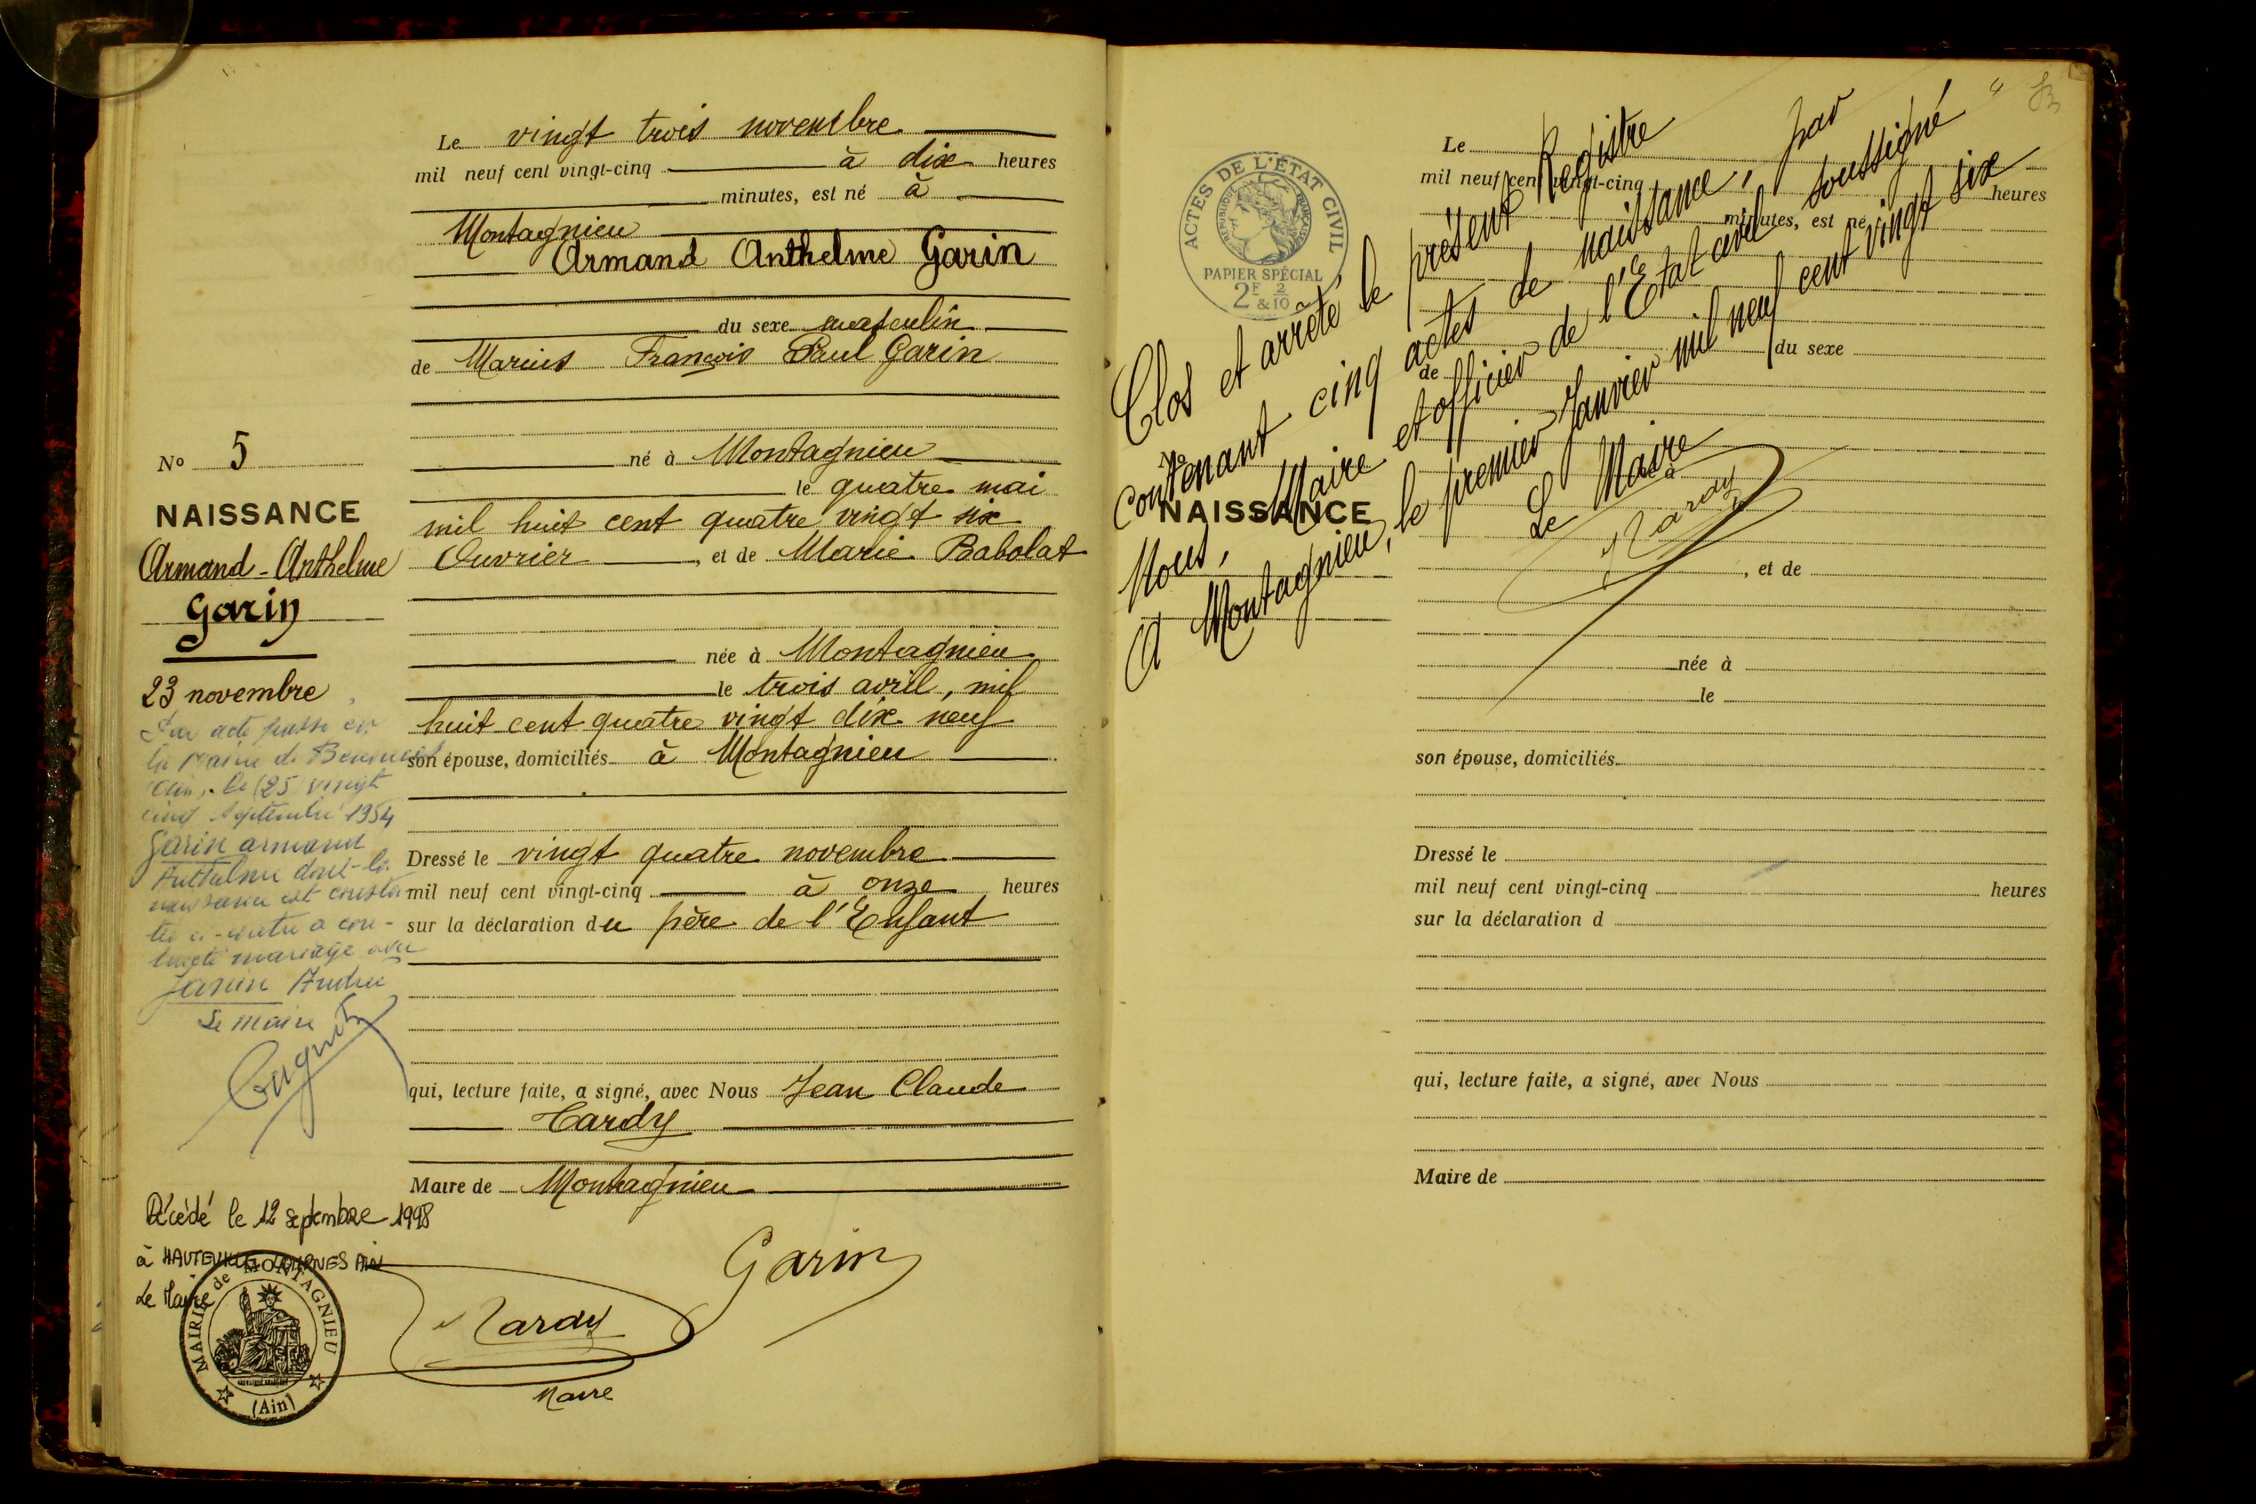 Le vingt trois novembre
mil neuf cent vingt-cinq à dix heures
minutes, est né à
Montagnieu
Armand Anthelme Garin
du sexe masculin
de Marius François Paul Garin
né à Montagnieu
le quatre mai
mil huit cent quatre vingt six
Ouvrier, et de Marie Babolat
née à Montagnieu
le trois avril, mil
huit cent quatre vingt dix neuf
son épouse, domiciliés à Montagnieu
Dressé le vingt quatre novembre
mil neuf cent vingt-cinq à onze heures
sur la déclaration du père de l'Enfant
qui, lecture faite, a signé, avec Nous Jean Claude
Tardy
Maire de Montagnieu
Garin
Tardy
Maire
No 5
NAISSANCE
Armand-Anthelme
Garin
23 novembre
Par acte passé en
la Mairie de
Ain, le (25 vingt
cinq septembre 1954
Garin armand
Anthelme dont la
naissance est consta
tée ci-contre a con-
tracté mariage avec
Janin
Le Maire
Décédé le 12 septembre 1998
à HAUTEVILLE LOMPNES AIN
Le Maire
MAIRIE de MONTAGNIEU
(Ain)
ACTES DE L'ÉTAT CIVIL
RÉPUBLIQUE FRANÇAISE
PAPIER SPÉCIAL
2F 2
&10
Clos et arrêté le présent Registre
contenant cinq actes de naissance, par
Nous, Maire et officier de l'Etat civil soussigné
A Montagnieu, le premier Janvier mil neuf cent vingt six
Le Maire
Tardy
Le
mil neuf cent vingt-cinq
heures
minutes, est né
du sexe
de
No
NAISSANCE
né à
, et de
née à
le
son épouse, domiciliés
Dressé le
mil neuf cent vingt-cinq heures
sur la déclaration d
qui, lecture faite, a signé, avec Nous
Maire de